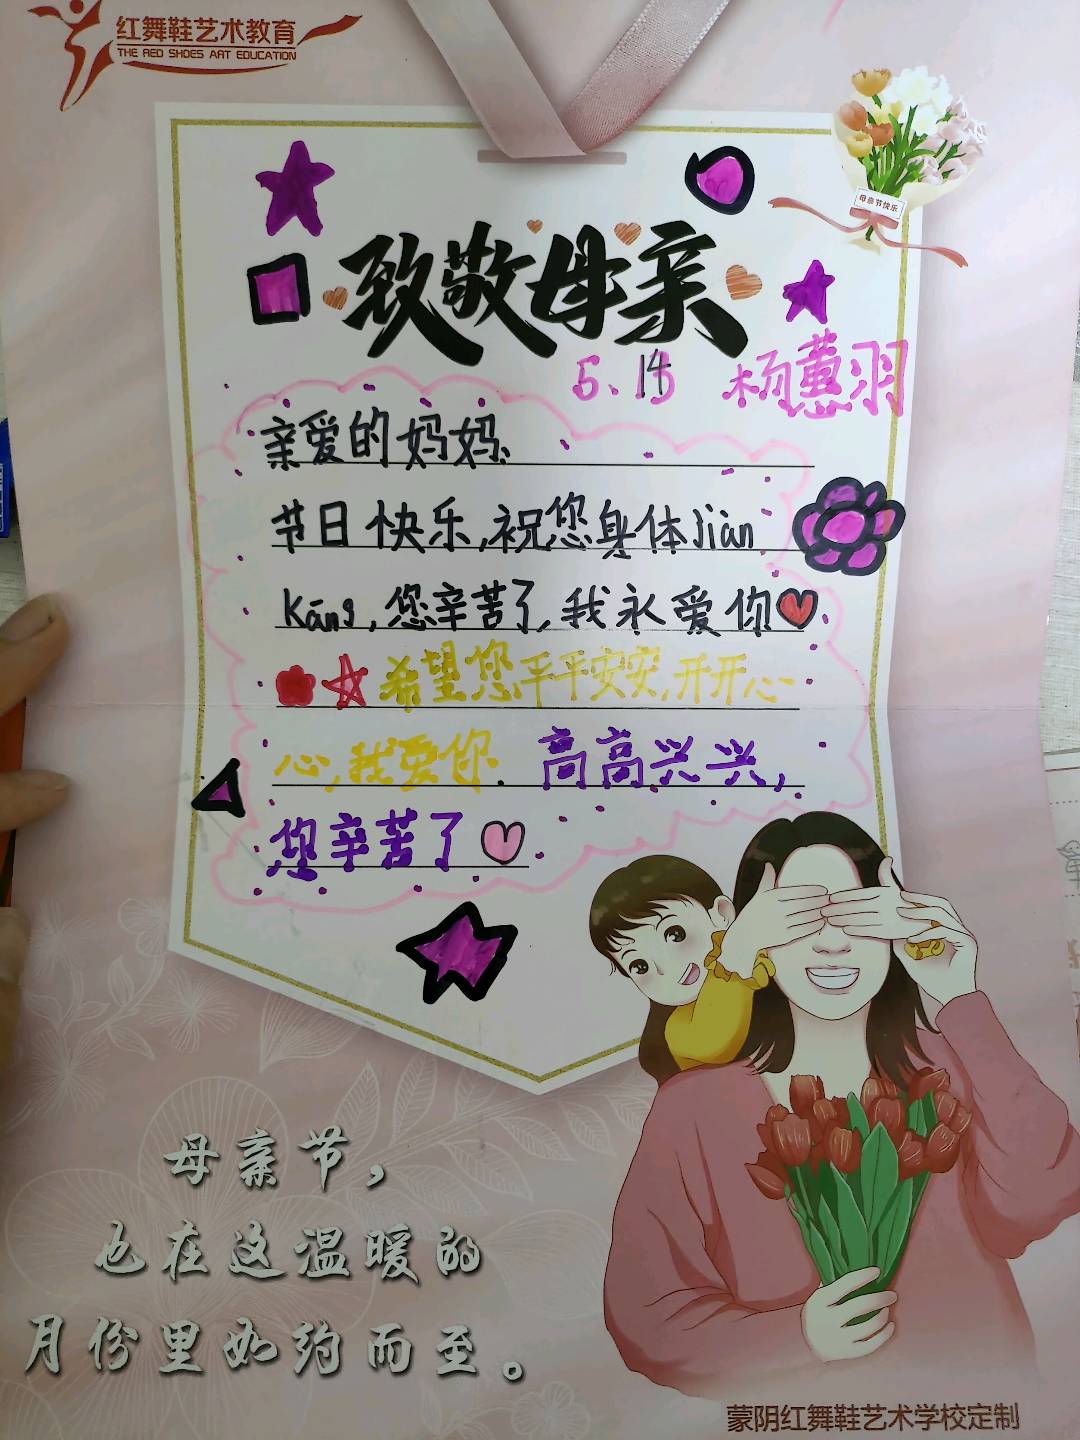 红舞鞋艺术教育
THE RED SHOES ART EDUCATION
母亲节快乐
致敬母亲
5.14 杨蕙羽
亲爱的妈妈、
节日快乐,祝您身体Jiàn
Kāng,您辛苦了,我永爱你
希望您平平安安,开开心
心,我爱你. 高高兴兴,
您辛苦了
母亲节,
也在这温暖的
月份里如约而至。
蒙阴红舞鞋艺术学校定制